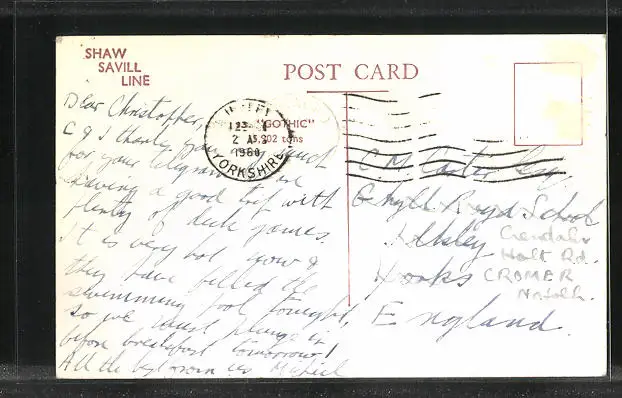 SHAW
SAVILL
LINE
POST CARD
"GOTHIC"
15,902 tons
ILKLEY
1960
YORKSHIRE
Dear Christopher,
C & I thank you very much
for your telegram. We are
having a good trip with
plenty of deck games.
It is very hot now &
they have filled the
swimming pool tonight,
so we must plunge in
before breakfast tomorrow!
All the best from us Michael
C M Carter Esq.
Ghyll Royd School
Ilkley
Yorks
England.
Holt Rd.
CROMER
Norfolk.